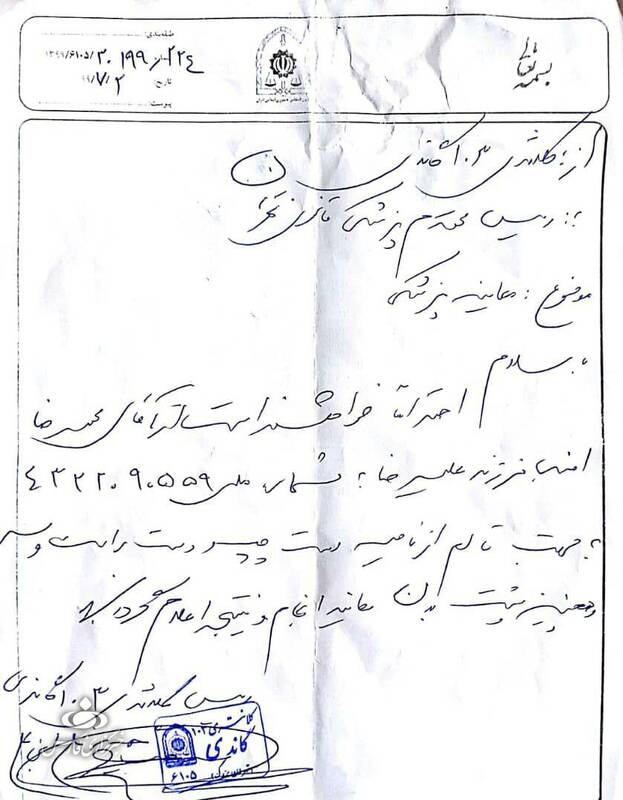 بسمه تعالی
طبقه‌بندی:
۱۳۹۹/۶۱۰۵/۳۰۱۹۹
تاریخ: ۹۹/۷/۲
پیوست:
از: کلانتری ۱۰۳ گاندی
به: ریاست محترم پزشکی قانونی
موضوع: معاینه پزشکی
سلام
احتراماً خواهشمند است از آقای محمدرضا
فرزند علیرضا به شماره ملی ۴۳۲۲۰۹۰۵۵۹
جهت تالم از ناحیه دست چپ و دست راست و سر
و همچنین پشت بدن معاینه انجام و نتیجه اعلام گردد
رییس کلانتری ۱۰۳ گاندی
کلانتری ۱۰۳
گاندی
۶۱۰۵